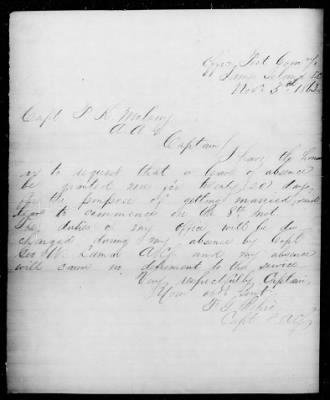 Office Post Com
Nov. 5th 186
Capt
A A G
Captain
I have the honor
to request that a leave of absence
be granted me for twenty (20) days,
for the purpose of getting married, said
leave to commence on the 8th inst.
The duties of my office will be dis
charged during my absence by Capt
Geo. W. Lamar and my absence
will cause no detriment to the service
Very respectfully Captain
Your obt Servt.
Capt